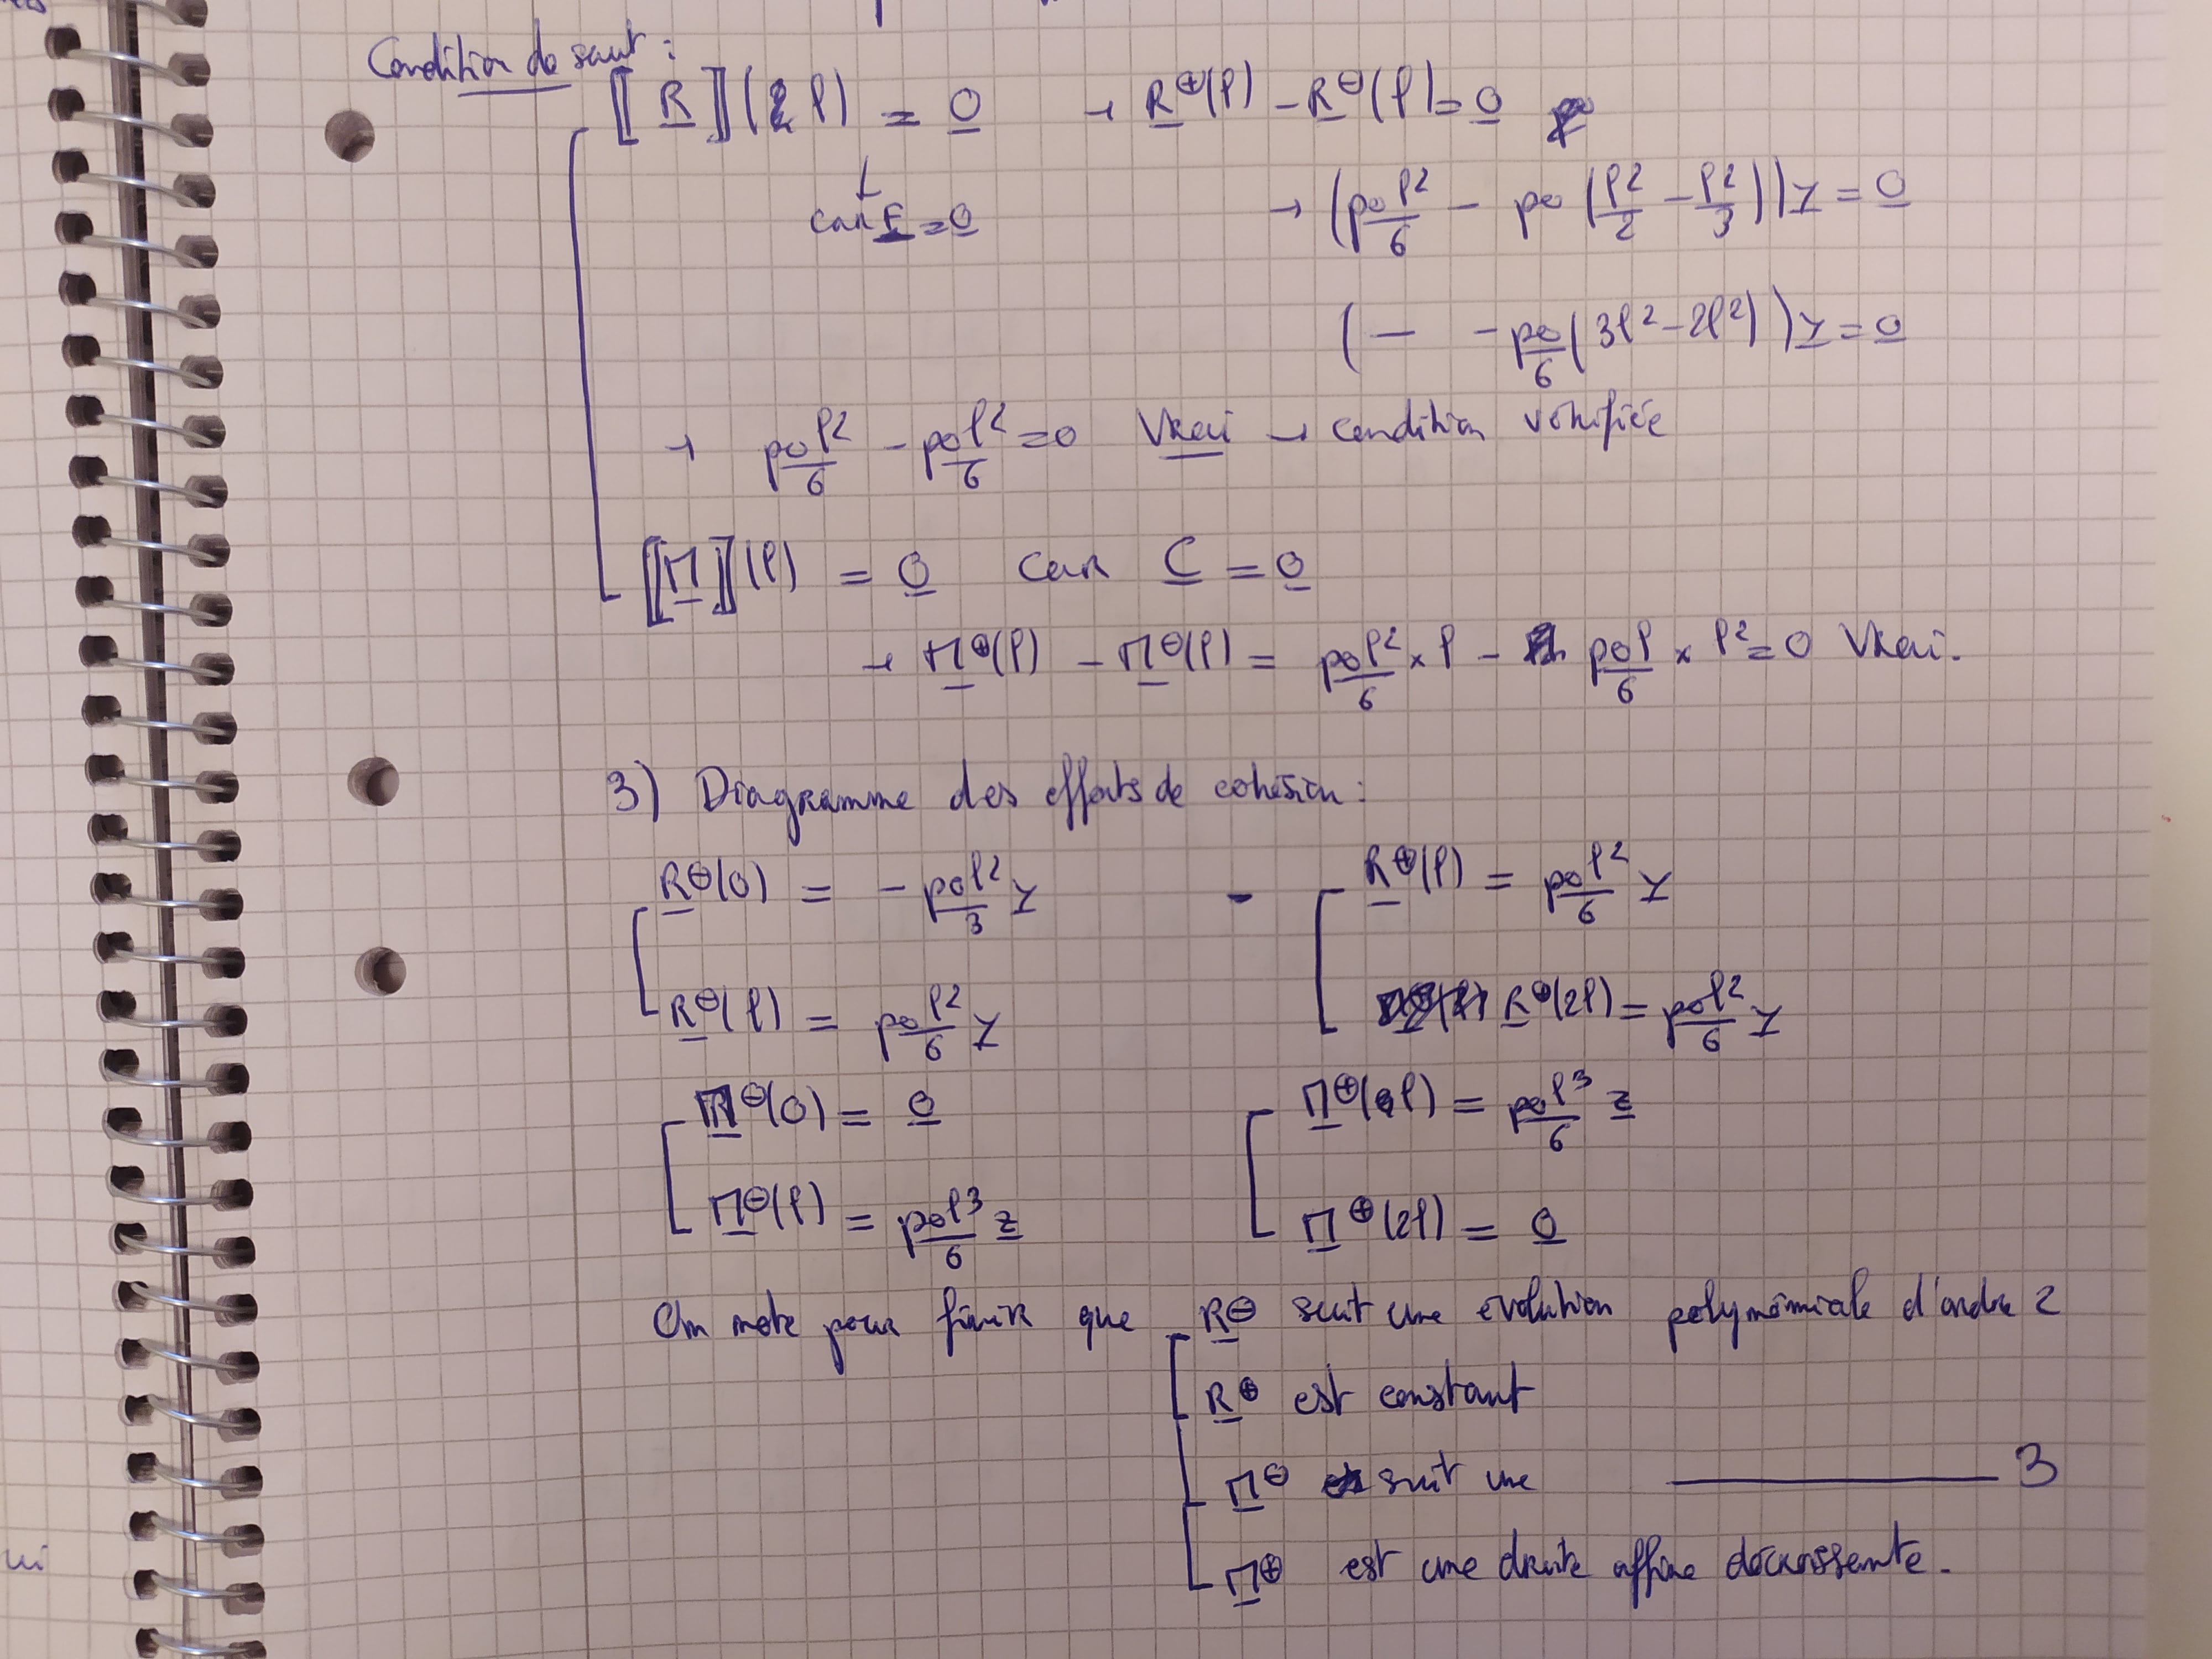 Condition de saut :
[[R]](l) = 0 → R⊕(l) - R⊖(l) = 0
car F = 0 → (p0l²/6 - p0(l²/2 - l²/3))y = 0
(— - p0/6(3l² - 2l²))y = 0
→ p0l²/6 - p0l²/6 = 0 Vrai → condition vérifiée
[[M]](l) = 0 car C = 0
→ M⊕(l) - M⊖(l) = p0l²/6 × l - p0l/6 × l² = 0 Vrai.
3) Diagramme des efforts de cohésion :
R⊖(0) = - p0l²/3 y - R⊕(l) = p0l²/6 y
R⊖(l) = p0l²/6 y R⊕(2l) = p0l²/6 y
M⊖(0) = 0 M⊕(l) = p0l³/6 z
M⊖(l) = p0l³/6 z M⊕(2l) = 0
On note pour finir que R⊖ suit une évolution polynômiale d'ordre 2
R⊕ est constant
M⊖ suit une ——— 3
M⊕ est une droite affine décroissante.
ui